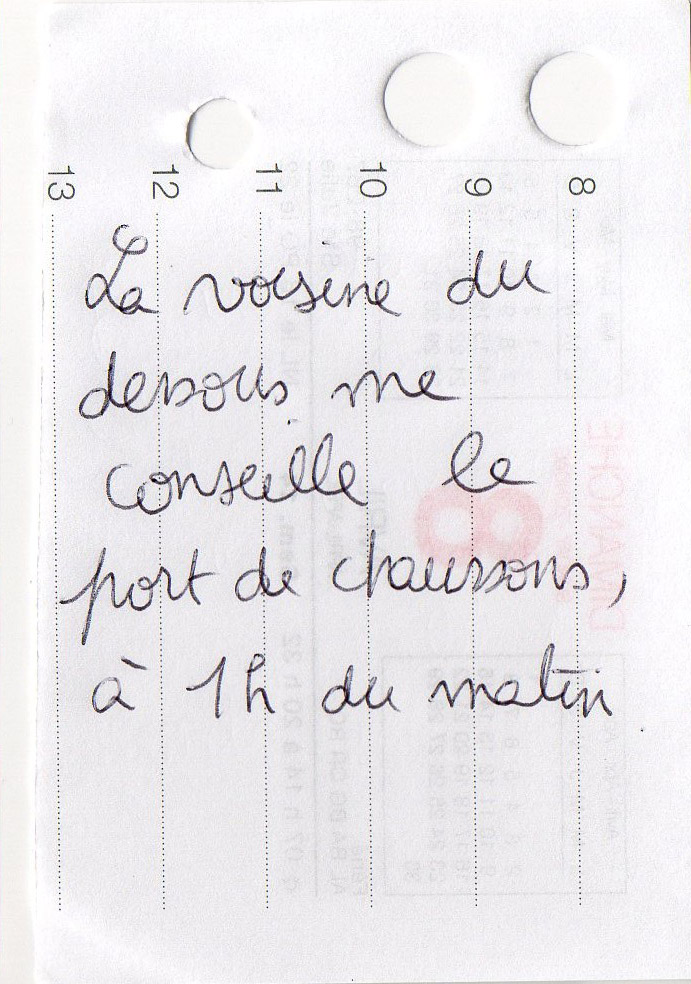 13 12 11 10 9 8
La voisine du
dessous me
conseille le
port de chaussons,
à 1h du matin
8
DIMANCHE